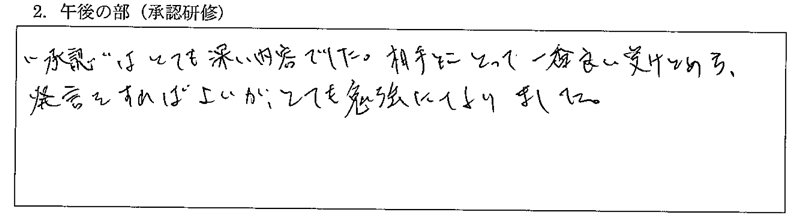 2. 午後の部（承認研修）
"承認"はとても深い内容でした。相手にとって一番良い受けとめ方、
発言をすればよいか、とても勉強になりました。